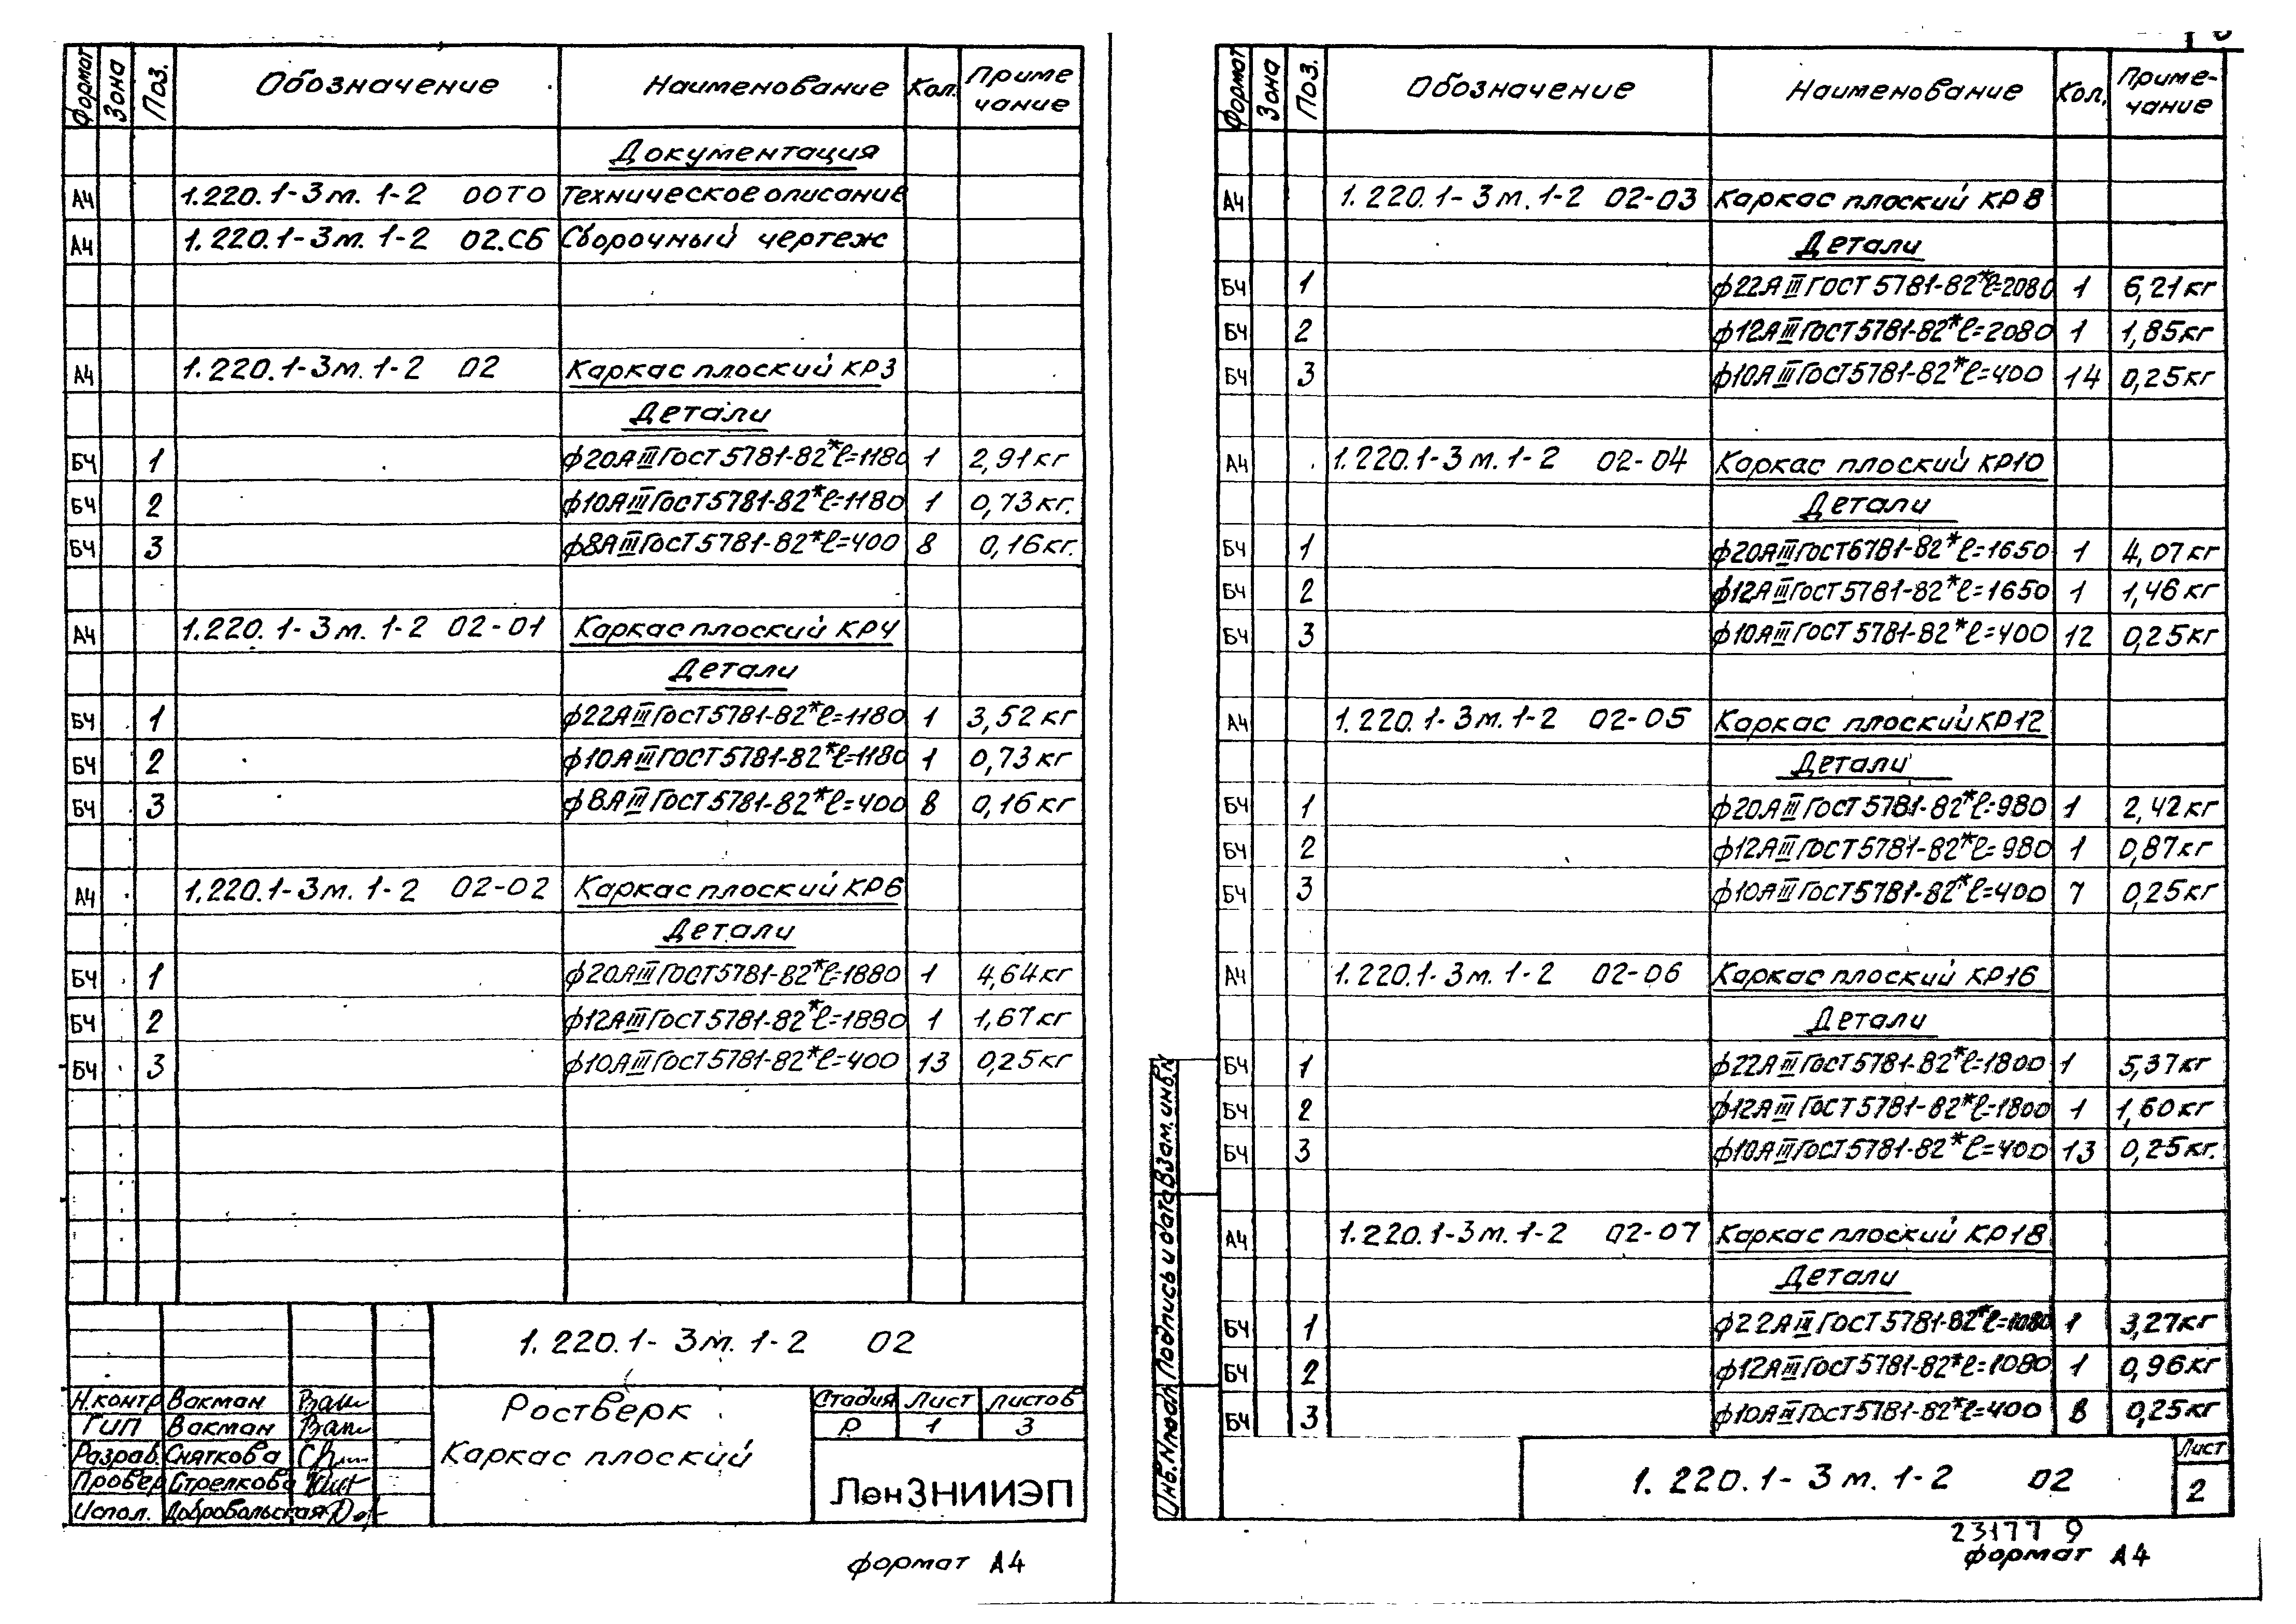 Формат Зона Поз. Обозначение Наименование Кол. Приме чание
Документация
А4 1.220.1-3м.1-2 00ТО Техническое описание
А4 1.220.1-3м.1-2 02.СБ Сборочный чертеж
А4 1.220.1-3м.1-2 02 Каркас плоский КР3
Детали
БЧ 1 ф20АIII ГОСТ 5781-82* ℓ=1180 1 2,91кг
БЧ 2 ф10АIII ГОСТ 5781-82* ℓ=1180 1 0,73кг.
БЧ 3 ф8АIII ГОСТ 5781-82* ℓ=400 8 0,16кг.
А4 1.220.1-3м.1-2 02-01 Каркас плоский КР4
Детали
БЧ 1 ф22АIII ГОСТ 5781-82* ℓ=1180 1 3,52кг
БЧ 2 ф10АIII ГОСТ 5781-82* ℓ=1180 1 0,73кг
БЧ 3 ф8АIII ГОСТ 5781-82* ℓ=400 8 0,16кг
А4 1.220.1-3м.1-2 02-02 Каркас плоский КР6
Детали
БЧ 1 ф20АIII ГОСТ 5781-82* ℓ=1880 1 4,64кг
БЧ 2 ф12АIII ГОСТ 5781-82* ℓ=1880 1 1,67кг
БЧ 3 ф10АIII ГОСТ 5781-82* ℓ=400 13 0,25кг
1.220.1-3м.1-2 02
Н.контр Вакман
ГИП Вакман
Разраб. Сняткова
Провер Стрелкова
Испол. Добровольская
Ростверк
Каркас плоский
Стадия Лист Листов
Р 1 3
ЛенЗНИИЭП
формат А4
Формат Зона Поз. Обозначение Наименование Кол. Приме-чание
А4 1.220.1-3м.1-2 02-03 Каркас плоский КР8
Детали
БЧ 1 ф22АIII ГОСТ 5781-82* ℓ=2080 1 6,21кг
БЧ 2 ф12АIII ГОСТ 5781-82* ℓ=2080 1 1,85кг
БЧ 3 ф10АIII ГОСТ 5781-82* ℓ=400 14 0,25кг
А4 1.220.1-3м.1-2 02-04 Каркас плоский КР10
Детали
БЧ 1 ф20АIII ГОСТ 6781-82* ℓ=1650 1 4,07кг
БЧ 2 ф12АIII ГОСТ 5781-82* ℓ=1650 1 1,46кг
БЧ 3 ф10АIII ГОСТ 5781-82* ℓ=400 12 0,25кг
А4 1.220.1-3м.1-2 02-05 Каркас плоский КР12
Детали
БЧ 1 ф20АIII ГОСТ 5781-82* ℓ=980 1 2,42кг
БЧ 2 ф12АIII ГОСТ 5781-82* ℓ=980 1 0,87кг
БЧ 3 ф10АIII ГОСТ 5781-82* ℓ=400 7 0,25кг
А4 1.220.1-3м.1-2 02-06 Каркас плоский КР16
Детали
БЧ 1 ф22АIII ГОСТ 5781-82* ℓ=1800 1 5,37кг
БЧ 2 ф12АIII ГОСТ 5781-82* ℓ=1800 1 1,60кг
БЧ 3 ф10АIII ГОСТ 5781-82* ℓ=400 13 0,25кг.
А4 1.220.1-3м.1-2 02-07 Каркас плоский КР18
Детали
БЧ 1 ф22АIII ГОСТ 5781-82* ℓ=1080 1 3,27кг
БЧ 2 ф12АIII ГОСТ 5781-82* ℓ=1080 1 0,96кг
БЧ 3 ф10АIII ГОСТ 5781-82* ℓ=400 8 0,25кг
Инв.Nподл Подпись и дата Взам.инв.N
1.220.1-3м.1-2 02
Лист
2
23177 9
формат А4